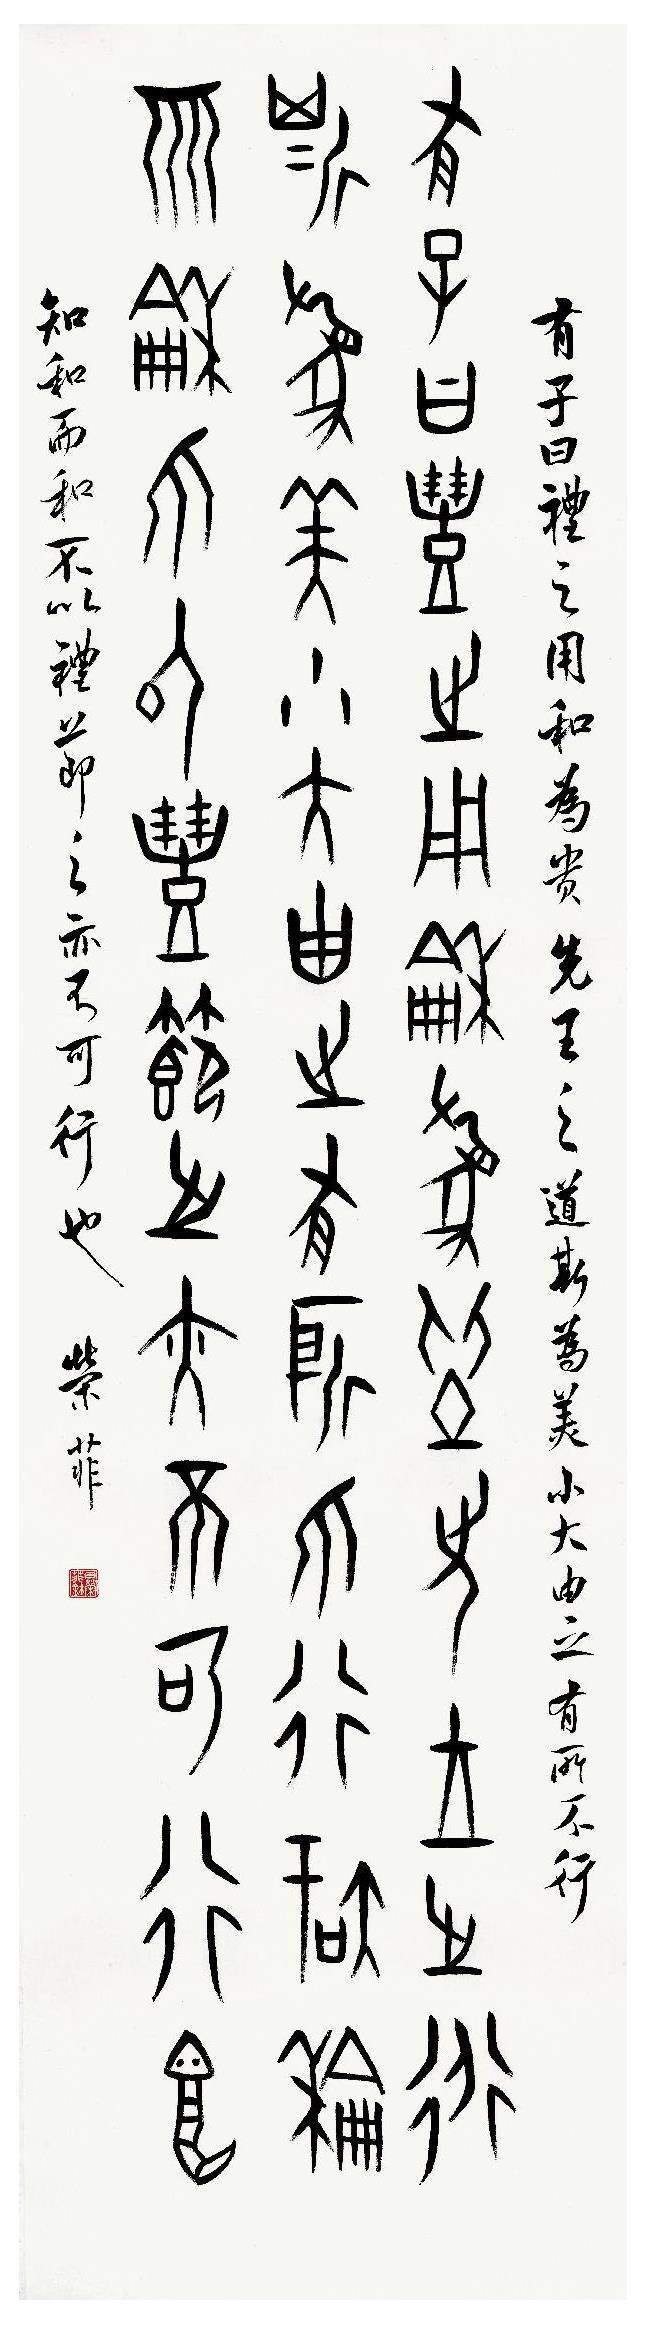 有子曰禮之用和為貴先王之道斯為美小大由之有所不行
有子曰豊之用龢為貴先王之道
斯為美小大由之有所不行知龢
而龢不以豊節之亦不可行也
知和而和不以禮節之亦不可行也 榮菲